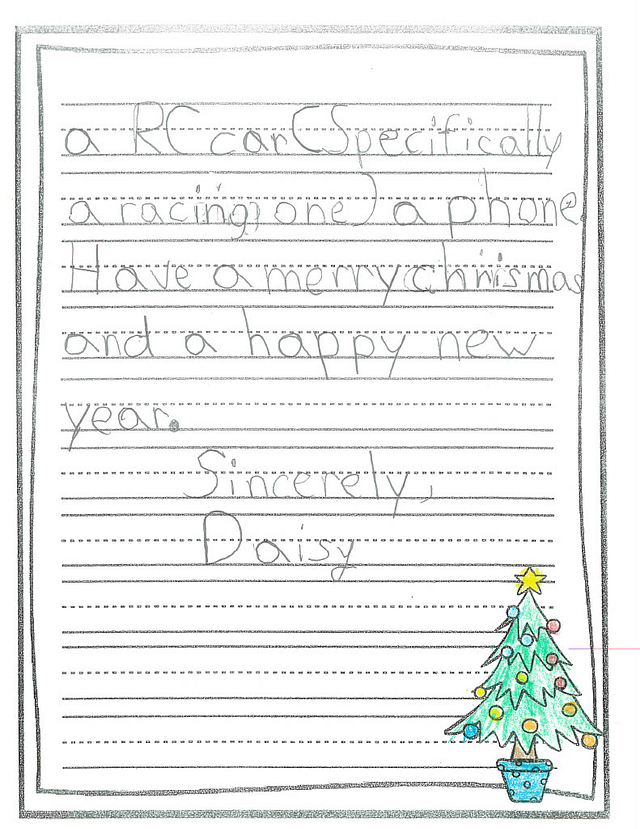 a RC car (Specifically
a racing one) a phone
Have a merry chrismas
and a happy new
year.
Sincerely,
Daisy